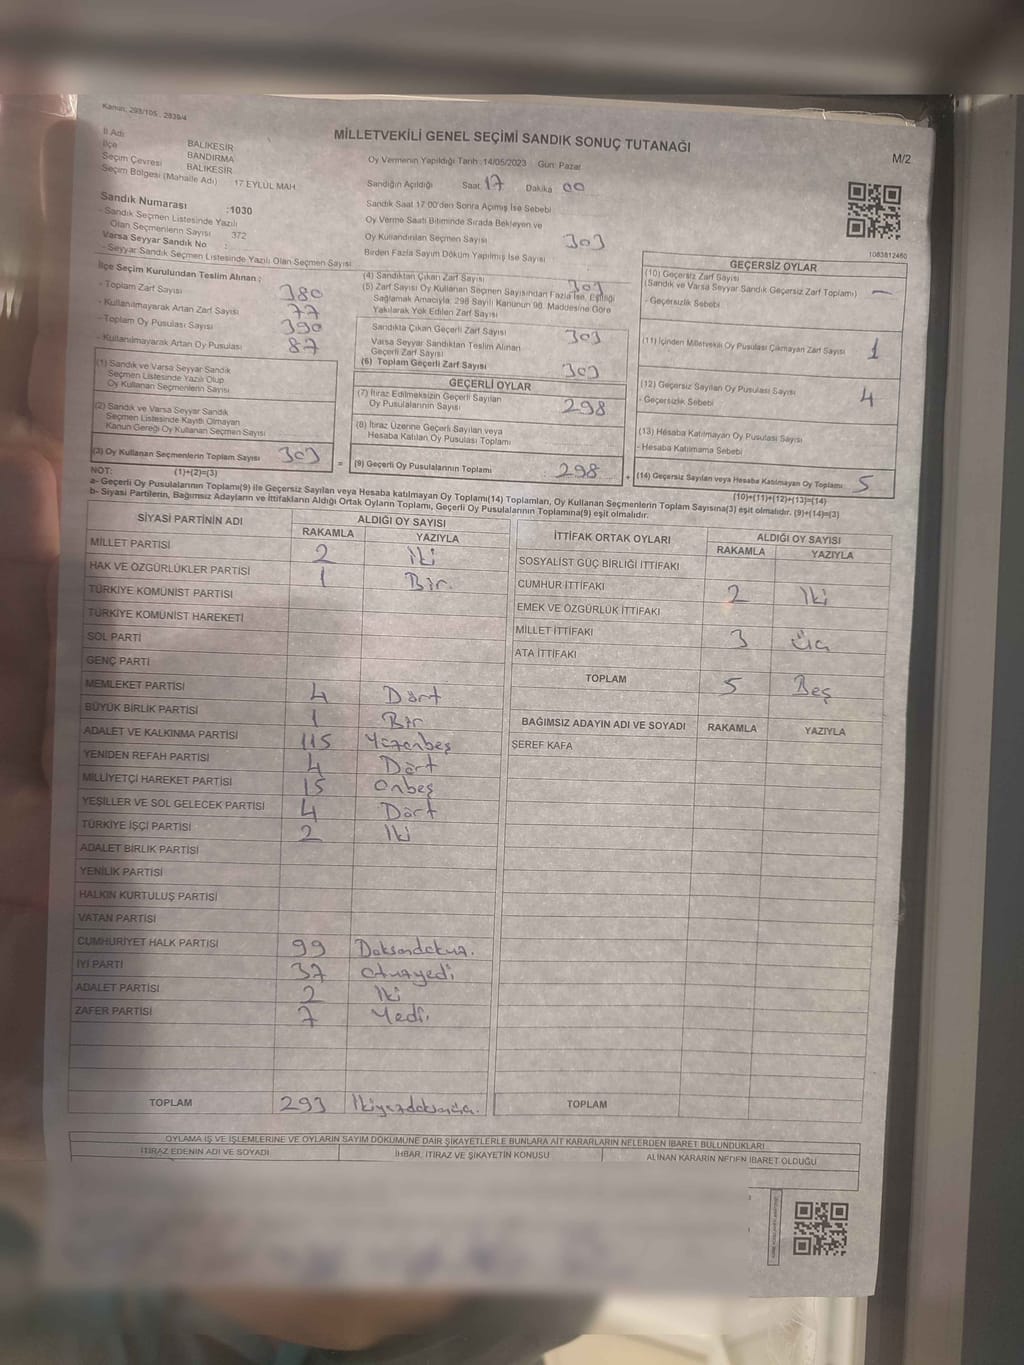 Kanun: 298/105 , 2839/4
MİLLETVEKİLİ GENEL SEÇİMİ SANDIK SONUÇ TUTANAĞI
M/2
İl Adı BALIKESİR
İlçe BANDIRMA
Seçim Çevresi BALIKESİR
Seçim Bölgesi (Mahalle Adı) 17 EYLÜL MAH.
Sandık Numarası :1030
- Sandık Seçmen Listesinde Yazılı
Olan Seçmenlerin Sayısı 372
Varsa Seyyar Sandık No :
- Seyyar Sandık Seçmen Listesinde Yazılı Olan Seçmen Sayısı
Oy Vermenin Yapıldığı Tarih :14/05/2023 Gün: Pazar
Sandığın Açıldığı Saat 17 Dakika 00
Sandık Saat 17:00'den Sonra Açılmış İse Sebebi
Oy Verme Saati Bitiminde Sırada Bekleyen ve
Oy Kullandırılan Seçmen Sayısı 303
Birden Fazla Sayım Döküm Yapılmış İse Sayısı
İlçe Seçim Kurulundan Teslim Alınan ;
- Toplam Zarf Sayısı 380
- Kullanılmayarak Artan Zarf Sayısı 77
- Toplam Oy Pusulası Sayısı 390
- Kullanılmayarak Artan Oy Pusulası 87
(1) Sandık ve Varsa Seyyar Sandık
Seçmen Listesinde Yazılı Olup
Oy Kullanan Seçmenlerin Sayısı
(2) Sandık ve Varsa Seyyar Sandık
Seçmen Listesinde Kayıtlı Olmayan
Kanun Gereği Oy Kullanan Seçmen Sayısı
(3) Oy Kullanan Seçmenlerin Toplam Sayısı 303
(1)+(2)=(3)
(4) Sandıktan Çıkan Zarf Sayısı 303
(5) Zarf Sayısı Oy Kullanan Seçmen Sayısından Fazla İse, Eşitliği
Sağlamak Amacıyla, 298 Sayılı Kanunun 98. Maddesine Göre
Yakılarak Yok Edilen Zarf Sayısı
Sandıkta Çıkan Geçerli Zarf Sayısı 303
Varsa Seyyar Sandıktan Teslim Alınan
Geçerli Zarf Sayısı
(6) Toplam Geçerli Zarf Sayısı 303
GEÇERLİ OYLAR
(7) İtiraz Edilmeksizin Geçerli Sayılan
Oy Pusulalarının Sayısı 298
(8) İtiraz Üzerine Geçerli Sayılan veya
Hesaba Katılan Oy Pusulası Toplamı
= (9) Geçerli Oy Pusulalarının Toplamı 298
1083812460
GEÇERSİZ OYLAR
(10) Geçersiz Zarf Sayısı
(Sandık ve Varsa Seyyar Sandık Geçersiz Zarf Toplamı) —
- Geçersizlik Sebebi
(11) İçinden Milletvekili Oy Pusulası Çıkmayan Zarf Sayısı 1
(12) Geçersiz Sayılan Oy Pusulası Sayısı 4
- Geçersizlik Sebebi
(13) Hesaba Katılmayan Oy Pusulası Sayısı
- Hesaba Katılmama Sebebi
+ (14) Geçersiz Sayılan veya Hesaba Katılmayan Oy Toplamı 5
(10)+(11)+(12)+(13)=(14)
NOT:
a- Geçerli Oy Pusulalarının Toplamı(9) ile Geçersiz Sayılan veya Hesaba katılmayan Oy Toplamı(14) Toplamları, Oy Kullanan Seçmenlerin Toplam Sayısına(3) eşit olmalıdır. (9)+(14)=(3)
b- Siyasi Partilerin, Bağımsız Adayların ve İttifakların Aldığı Ortak Oyların Toplamı, Geçerli Oy Pusulalarının Toplamına(9) eşit olmalıdır.
SİYASİ PARTİNİN ADI ALDIĞI OY SAYISI
RAKAMLA YAZIYLA
MİLLET PARTİSİ 2 İki
HAK VE ÖZGÜRLÜKLER PARTİSİ 1 Bir.
TÜRKİYE KOMÜNİST PARTİSİ
TÜRKİYE KOMÜNİST HAREKETİ
SOL PARTİ
GENÇ PARTİ
MEMLEKET PARTİSİ 4 Dört
BÜYÜK BİRLİK PARTİSİ 1 Bir
ADALET VE KALKINMA PARTİSİ 115 Yüzonbeş
YENİDEN REFAH PARTİSİ 4 Dört
MİLLİYETÇİ HAREKET PARTİSİ 15 Onbeş
YEŞİLLER VE SOL GELECEK PARTİSİ 4 Dört
TÜRKİYE İŞÇİ PARTİSİ 2 İki
ADALET BİRLİK PARTİSİ
YENİLİK PARTİSİ
HALKIN KURTULUŞ PARTİSİ
VATAN PARTİSİ
CUMHURİYET HALK PARTİSİ 99 Doksandokuz.
İYİ PARTİ 37 Otuzyedi
ADALET PARTİSİ 2 İki
ZAFER PARTİSİ 7 Yedi.
TOPLAM 293 İkiyüzdoksanüç.
İTTİFAK ORTAK OYLARI ALDIĞI OY SAYISI
RAKAMLA YAZIYLA
SOSYALİST GÜÇ BİRLİĞİ İTTİFAKI
CUMHUR İTTİFAKI 2 İki
EMEK VE ÖZGÜRLÜK İTTİFAKI
MİLLET İTTİFAKI 3 Üç
ATA İTTİFAKI
TOPLAM 5 Beş
BAĞIMSIZ ADAYIN ADI VE SOYADI RAKAMLA YAZIYLA
ŞEREF KAFA
TOPLAM
OYLAMA İŞ VE İŞLEMLERİNE VE OYLARIN SAYIM DÖKÜMÜNE DAİR ŞİKAYETLERLE BUNLARA AİT KARARLARIN NELERDEN İBARET BULUNDUKLARI
İTİRAZ EDENİN ADI VE SOYADI İHBAR, İTİRAZ VE ŞİKAYETİN KONUSU ALINAN KARARIN NEDEN İBARET OLDUĞU